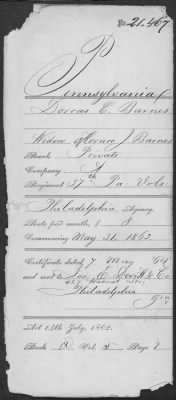 No 21.467
Pennsylvania
Dorcas E. Barnes
Widow Horace J. Barnes
Rank Private
Company
Regiment 57th Pa. Vols.
Philadelphia Agency.
Rate per month, $ 8
Commencing May 31. 1862
Certificate dated 7 May 64
and sent to Jos. E. Devitt & Co
427 Walnut St.
Philadelphia
Pa
Act 14th July, 1862.
Book Vol. Page